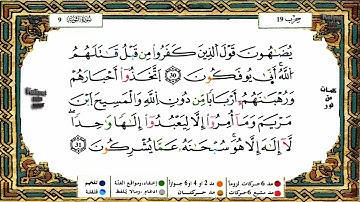 9 سورة التوبة حزب 19
يُضَٰهِـُٔونَ قَوْلَ ٱلَّذِينَ كَفَرُوا۟ مِن قَبْلُ قَٰتَلَهُمُ
ٱللَّهُ أَنَّىٰ يُؤْفَكُونَ 30 ٱتَّخَذُوٓا۟ أَحْبَارَهُمْ
وَرُهْبَٰنَهُمْ أَرْبَابًا مِّن دُونِ ٱللَّهِ وَٱلْمَسِيحَ ٱبْنَ
مَرْيَمَ وَمَآ أُمِرُوٓا۟ إِلَّا لِيَعْبُدُوٓا۟ إِلَٰهًا وَٰحِدًا
لَّآ إِلَٰهَ إِلَّا هُوَ سُبْحَٰنَهُۥ عَمَّا يُشْرِكُونَ 31
كلمات من نور
مد 6 حركات لزوما مد 2 أو 4 أو 6 جوازا إخفاء، ومواقع الغنة تفخيم
مد مشبع 6 حركات مد حركتان إدغام، ومالا يلفظ قلقلة